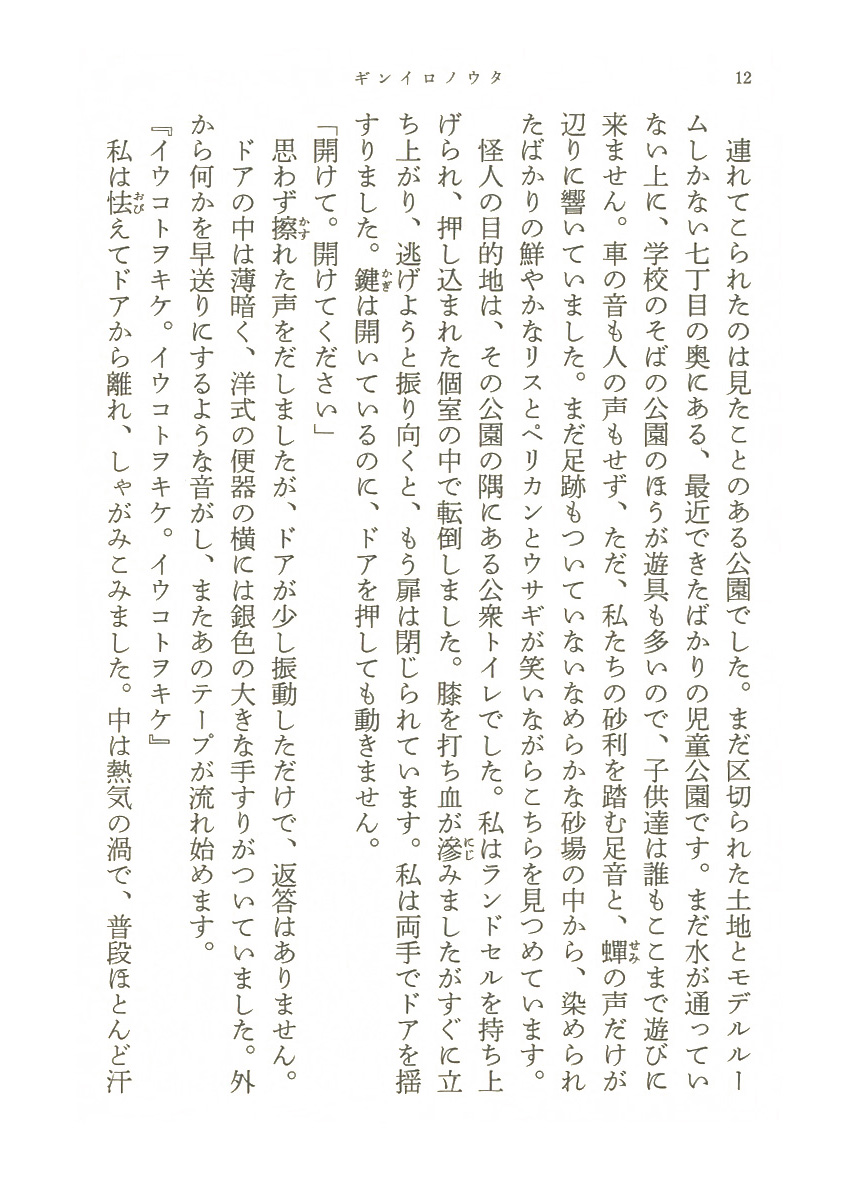 12
ギンイロノウタ
連れてこられたのは見たことのある公園でした。まだ区切られた土地とモデルルー
ムしかない七丁目の奥にある、最近できたばかりの児童公園です。まだ水が通ってい
ない上に、学校のそばの公園のほうが遊具も多いので、子供達は誰もここまで遊びに
来ません。車の音も人の声もせず、ただ、私たちの砂利を踏む足音と、蟬の声だけが
辺りに響いていました。まだ足跡もついていないなめらかな砂場の中から、染められ
たばかりの鮮やかなリスとペリカンとウサギが笑いながらこちらを見つめています。
怪人の目的地は、その公園の隅にある公衆トイレでした。私はランドセルを持ち上
げられ、押し込まれた個室の中で転倒しました。膝を打ち血が滲みましたがすぐに立
ち上がり、逃げようと振り向くと、もう扉は閉じられています。私は両手でドアを揺
すりました。鍵は開いているのに、ドアを押しても動きません。
「開けて。開けてください」
思わず擦れた声をだしましたが、ドアが少し振動しただけで、返答はありません。
ドアの中は薄暗く、洋式の便器の横には銀色の大きな手すりがついていました。外
から何かを早送りにするような音がし、またあのテープが流れ始めます。
『イウコトヲキケ。イウコトヲキケ。イウコトヲキケ』
私は怯えてドアから離れ、しゃがみこみました。中は熱気の渦で、普段ほとんど汗